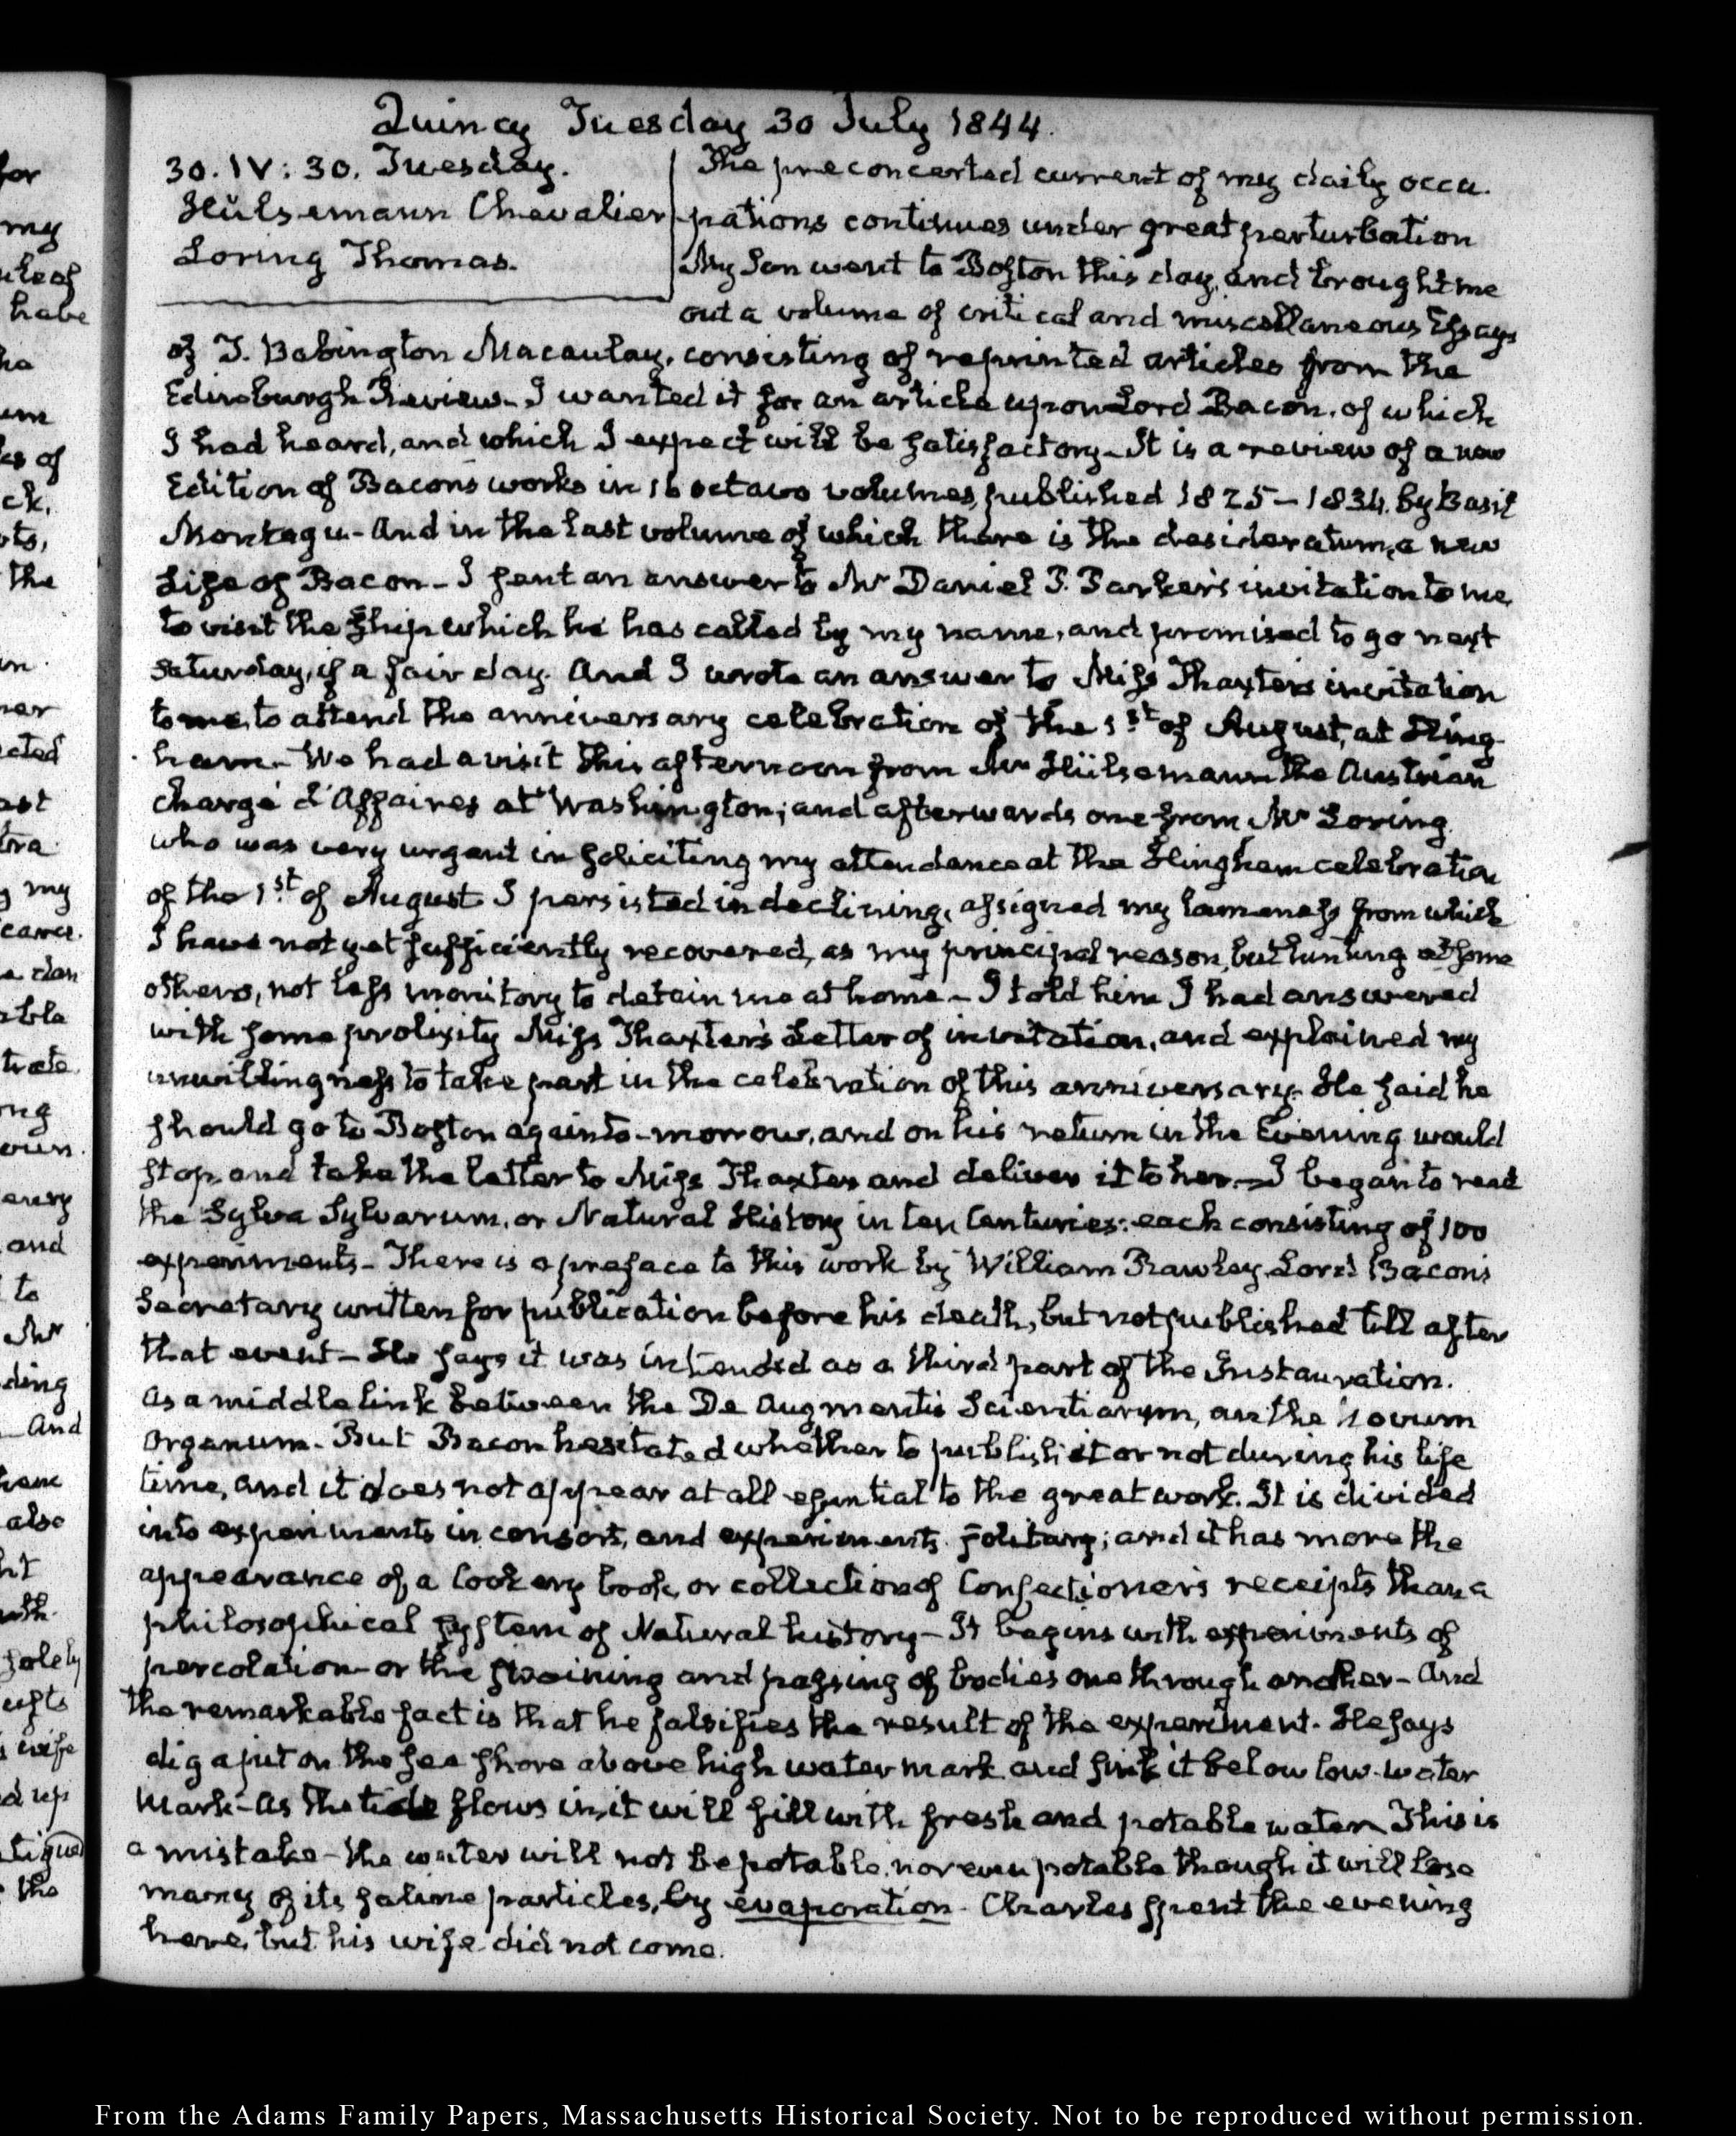 Quincy Tuesday 30 July 1844.
30. IV: 30. Tuesday.
Hülsemann Chevalier
Loring Thomas.
The preconcerted current of my daily occu-
pations continues under great perturbation
My Son went to Boston this day, and brought me
out a volume of critical and miscellaneous Essays
of T. Babington Macaulay, consisting of reprinted articles from the
Edinburgh Review. I wanted it for an article upon Lord Bacon, of which
I had heard, and which I expect will be satisfactory. It is a review of a new
Edition of Bacon's works in 16 octavo volumes, published 1825-1834. by Basil
Montagu- And in the last volume of which there is the desideratum, a new
Life of Bacon- I sent an answer to Mr Daniel P. Parker's invitation to me
to visit the Ship which he has called by my name, and promised to go next
Saturday, if a fair day. And I wrote an answer to Miss Thaxter's invitation
to me, to attend the anniversary celebration of the 1st of August, at Hing-
ham- We had a visit this afternoon from Mr Hülsemann the Austrian
Chargé d'Affaires at Washington; and afterwards one from Mr Loring
who was very urgent in soliciting my attendance at the Hingham celebration
of the 1st of August I persisted in declining, assigned my lameness from which
I have not yet sufficiently recovered, as my principal reason, but hinting at some
others, not less monitory to detain me at home- I told him I had answered
with some prolixity Miss Thaxter's Letter of invitation, and explained my
unwillingness to take part in the celebration of this anniversary. He said he
should go to Boston again to-morrow, and on his return in the Evening would
stop and take the letter to Miss Thaxter and deliver it to her.- I began to read
the Sylva Sylvarum, or Natural History in ten Centuries: each consisting of 100
experiments- There is a preface to this work by William Rawley, Lord Bacon's
Secretary written for publication before his death, but not published till after
that event- He says it was intended as a third part of the Instauration.
As a middle link between the De Augmentis Scientiarum, and the Novum
Organum- But Bacon hesitated whether to publish it or not during his life
time, and it does not appear at all essential to the great work. It is divided
into experiments in consort, and experiments solitary; and it has more the
appearance of a Cookery book, or collection of Confectioner's receipts than a
philosophical system of Natural history- It begins with experiments of
percolation- or the straining and passing of bodies one through another- And
the remarkable fact is that he falsifies the result of the experiment. He says
dig a pit on the sea shore above high water mark and sink it below low-water
mark- As the tide flows in, it will fill with fresh and potable water This is
a mistake- the water will not be potable nor even potable though it will lose
many of its saline particles, by evaporation. Charles spent the evening
here, but his wife did not come.
From the Adams Family Papers, Massachusetts Historical Society. Not to be reproduced without permission.